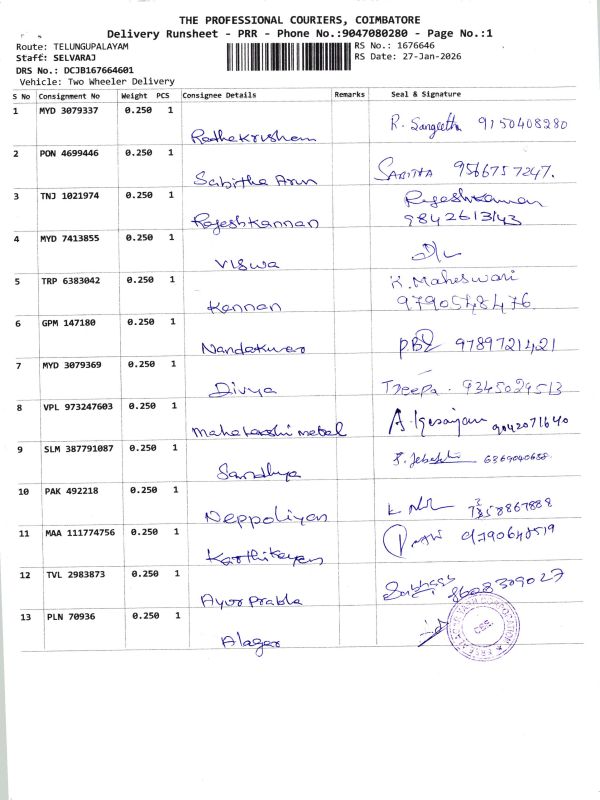 THE PROFESSIONAL COURIERS, COIMBATORE
Delivery Runsheet - PRR - Phone No.:9047080280 - Page No.:1
Route: TELUNGUPALAYAM
Staff: SELVARAJ
DRS No.: DCJB167664601
Vehicle: Two Wheeler Delivery
RS No.: 1676646
RS Date: 27-Jan-2026
S No Consignment No Weight PCS Consignee Details Remarks Seal & Signature
1 MYD 3079337 0.250 1
Rathakrishnan R. Sangeetha 9150408280
2 PON 4699446 0.250 1
Sabitha Arun SABITHA 9566757247.
3 TNJ 1021974 0.250 1
RajeshKannan Rajeshkannan 9842613143
4 MYD 7413855 0.250 1
Viswa
5 TRP 6383042 0.250 1
Kannan K. Maheswari 9790548476.
6 GPM 147180 0.250 1
Nandakumar 9789721421
7 MYD 3079369 0.250 1
Divya Deepa. 9345029513
8 VPL 973247603 0.250 1
Maharashi metal 9042071640
9 SLM 387791087 0.250 1
Sandhya 6369040688
10 PAK 492218 0.250 1
Neppoliyan
11 MAA 111774756 0.250 1
Karthikeyan 9790648519
12 TVL 2983873 0.250 1
Ayur Prabha 8608309027
13 PLN 70936 0.250 1
Alagar